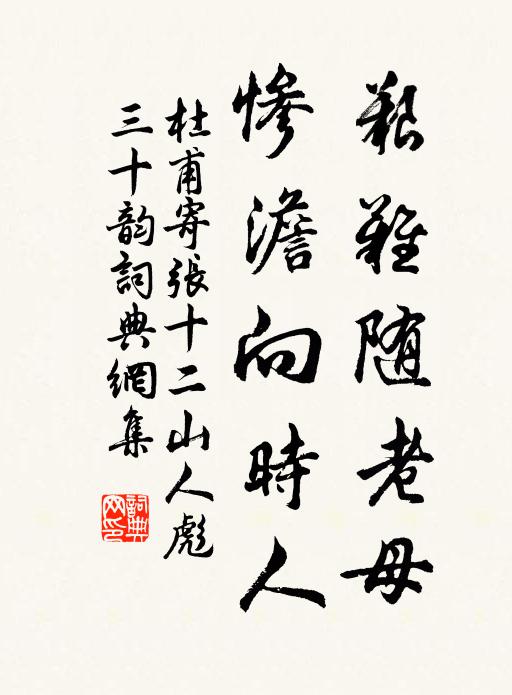 艱難随老母
慘澹向時人
杜甫寄張十二山人彪
三十韵詞典網集
詞典网印